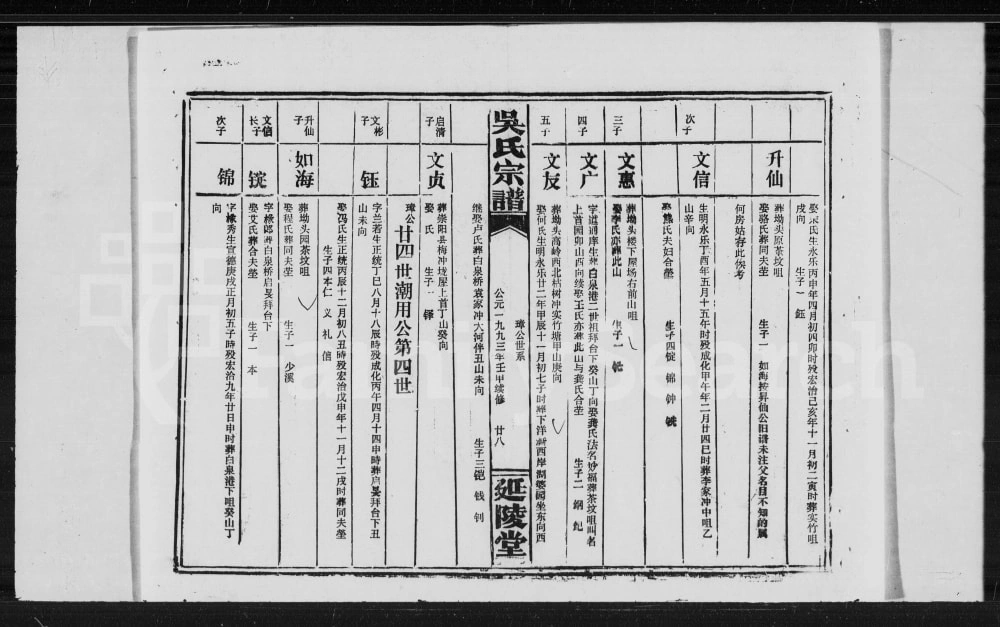 娶宋氏生永乐丙申年四月初四卯时殁宏治己亥年十一月初二寅时葬实竹咀
戌向 生子一 鈺
升仙
葬坳头原茶坟咀
娶骆氏葬同夫茔 生子一 如海按昇仙公旧谱未注父名目不知的属
何房姑存此俟考
次子
文信
生明永乐丁酉年五月十五午时殁成化甲午年二月廿四巳时葬李家冲中咀乙
山辛向
娶熊氏夫妇合茔 生子四锭 锦 钟 铖
三子
文惠
葬坳头楼下屋场右前山咀
娶李氏亦葬此山 生子一
四子
文广
字道通庠生葬白泉港二世祖拜台下癸山丁向娶龚氏法名妙福葬茶坟咀叫名
上首园卯山酉向续娶王氏亦葬此山与龚氏合茔 生子二 钢 纪
五子
文友
葬坳头高岭西北枯树冲实竹塘甲山庚向
娶何氏生明永乐廿二年甲辰十一月初七子时葬下洋西岸湖婆园坐东向西
吳氏宗譜
璋公世系
公元一九九三年壬甲续修 廿八
延陵堂
继娶卢氏葬白泉桥袁家冲大河伴丑山未向 生子三铠 钱 钊
启清子
文贞
葬崇阳县梅冲垅屋上首丁山癸向
娶 氏 生子一 铎
璋公廿四世潮用公第四世
文彬子
钰
字兰若生正统丁巳八月十八辰时殁成化丙午四月十四申時葬启旻拜台下丑
山未向
娶冯氏生正统丙辰十二月初八丑時殁宏治戊申年十一月十二戌时葬同夫茔
生子四本仁 义 礼 信
升仙子
如海
葬坳头园茶坟咀
娶程氏葬同夫茔 生子一 少溪
文信长子
锭
字樑郎葬白泉桥启旻拜台下
娶艾氏葬合夫茔 生子一 本
次子
锦
字樑秀生宣德庚戌正月初五子時殁宏治九年廿日申时葬白泉港下咀癸山丁
向